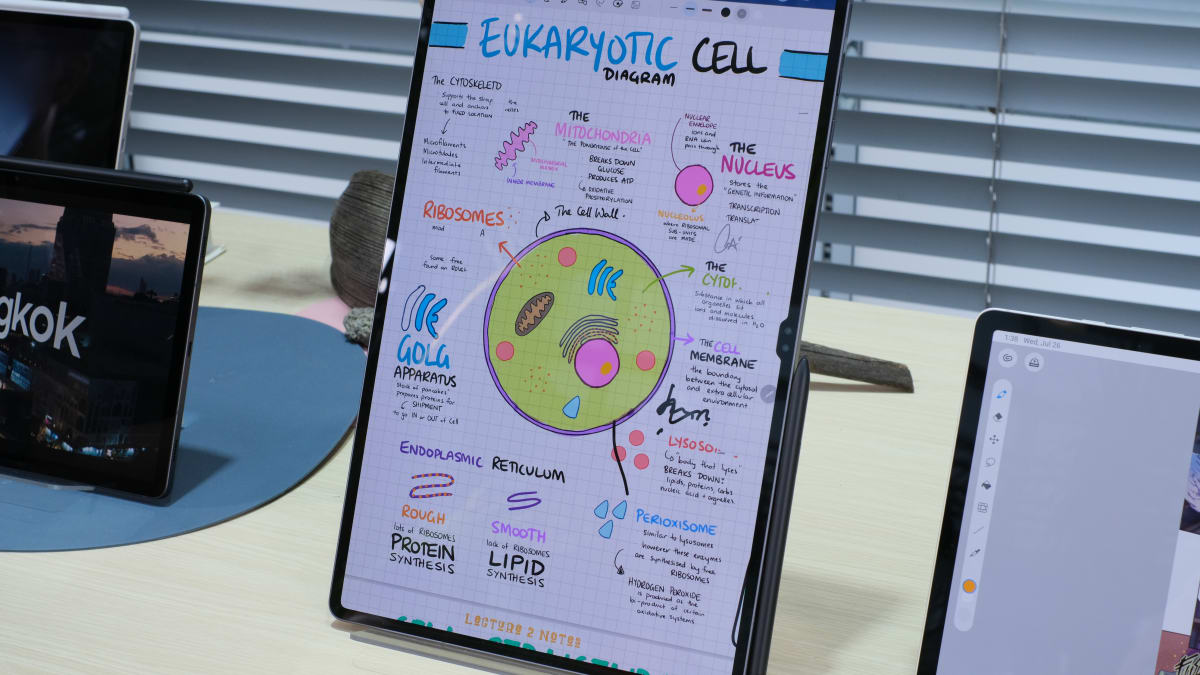 EUKARYOTIC CELL
DIAGRAM
The CYTOSKELETO
Supports the
cell and anchors
to FIXED LOCATION
Microfilaments
Microtubules
Intermediate
filaments
THE
MITOCHONDRIA
"THE POWERHOUSE of the CELL"
BREAKS DOWN
GLUCOSE
PRODUCES ATP
OXIDATIVE
INNER MEMBRANE
NUCLEAR
ENVELOPE
ions and
RNA can
pass through
THE
NUCLEUS
Stores the
"GENETIC INFORMATION"
TRANSCRIPTION
TRANSLA
NUCLEOLUS
where RIBOSOMAL
SUB-UNITS
are MADE
RIBOSOMES
mad A
Some free
found on
The Cell Wall.
THE
CYTOP
Substance in which all
organelles sit
ions and molecules
dissolved in H2O
GOLG
APPARATUS
stack of pancakes
prepares proteins for
SHIPMENT
to go IN or OUT of Cell
THE CELL
MEMBRANE
the boundary
between the cytosol
and extra cellular
environment
LYSOSO
"body that lyses"
BREAKS DOWN:
lipids, proteins, carbs
nucleic acid + organelles
ENDOPLASMIC RETICULUM
ROUGH
lots of RIBOSOMES
PROTEIN
SYNTHESIS
SMOOTH
lack of RIBOSOMES
LIPID
SYNTHESIS
PERIOXISOME
similar to lysosomes
however these enzymes
are synthesised by free
RIBOSOMES
HYDROGEN PEROXIDE
is produced as the
bi-product of certain
oxidative systems.
LECTURE 2 NOTES
gkok
1:38 Wed, Jul 26